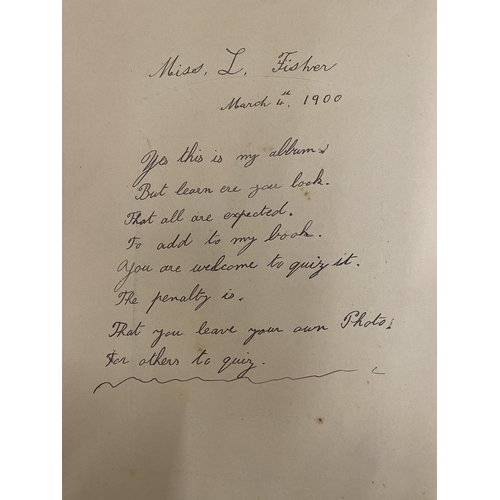 Miss. L. Fisher
March 4th. 1900
Yes this is my album.
But learn ere you look.
That all are expected.
To add to my book.
You are welcome to quiz it.
The penalty is.
That you leave your own Photo.
For others to quiz.